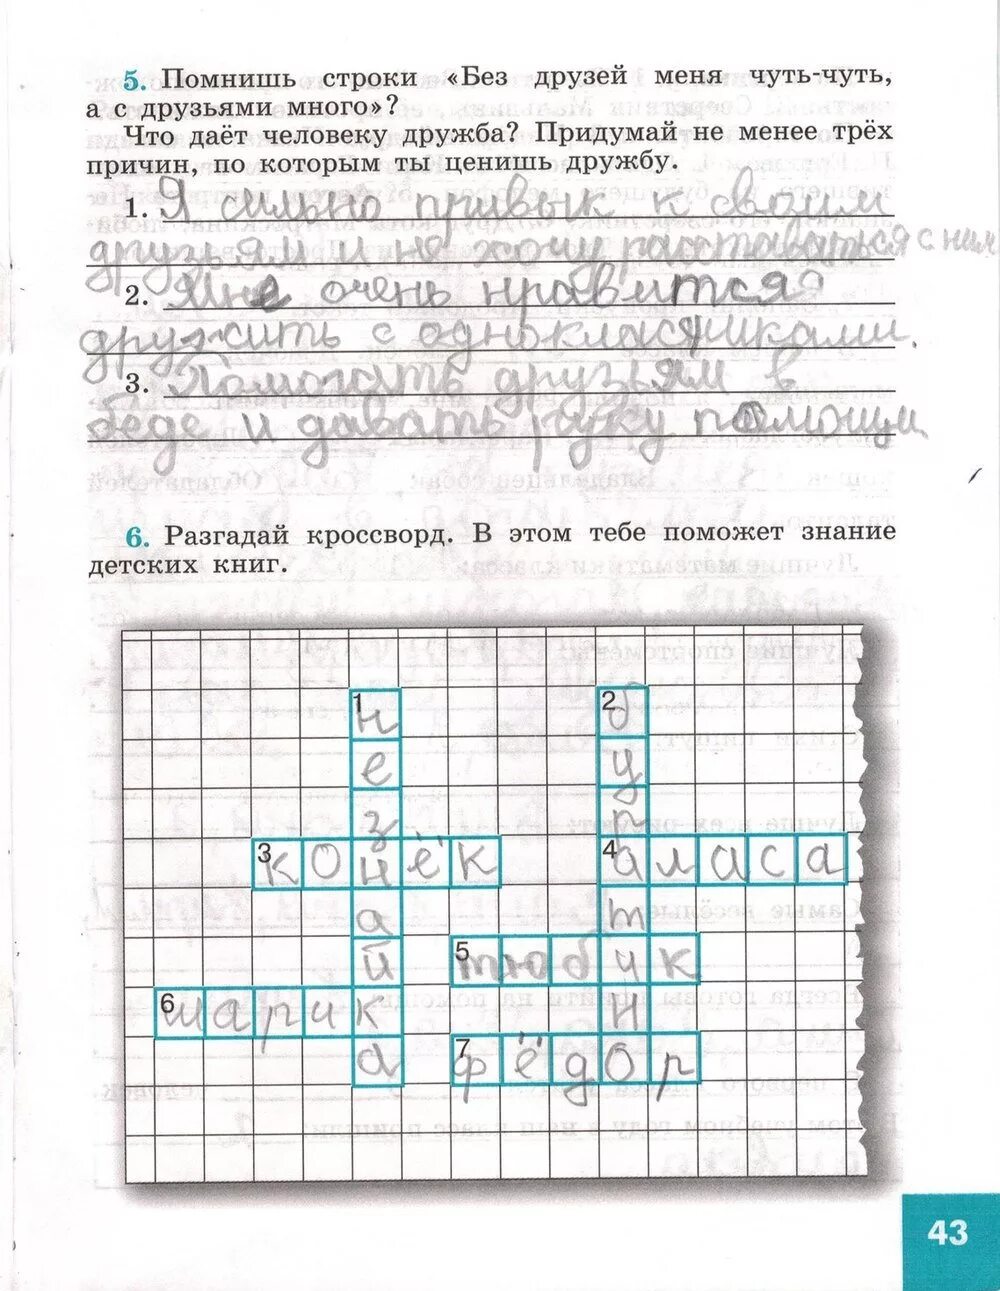 5. Помнишь строки «Без друзей меня чуть-чуть,
а с друзьями много»?
Что даёт человеку дружба? Придумай не менее трёх
причин, по которым ты ценишь дружбу.
1. Я сильно привык к своим
друзьям и не хочу расставаться с ним
2. Мне очень нравится
дружить с одноклассниками.
3. Помогать друзьям в
беде и давать руку помощи
6. Разгадай кроссворд. В этом тебе поможет знание
детских книг.
1 н 2 б
е у
з р
3 к о н ё к 4 а л а с а
а т
й 5 т ю б и к
6 ш а р и к н
а 7 ф ё д о р
43